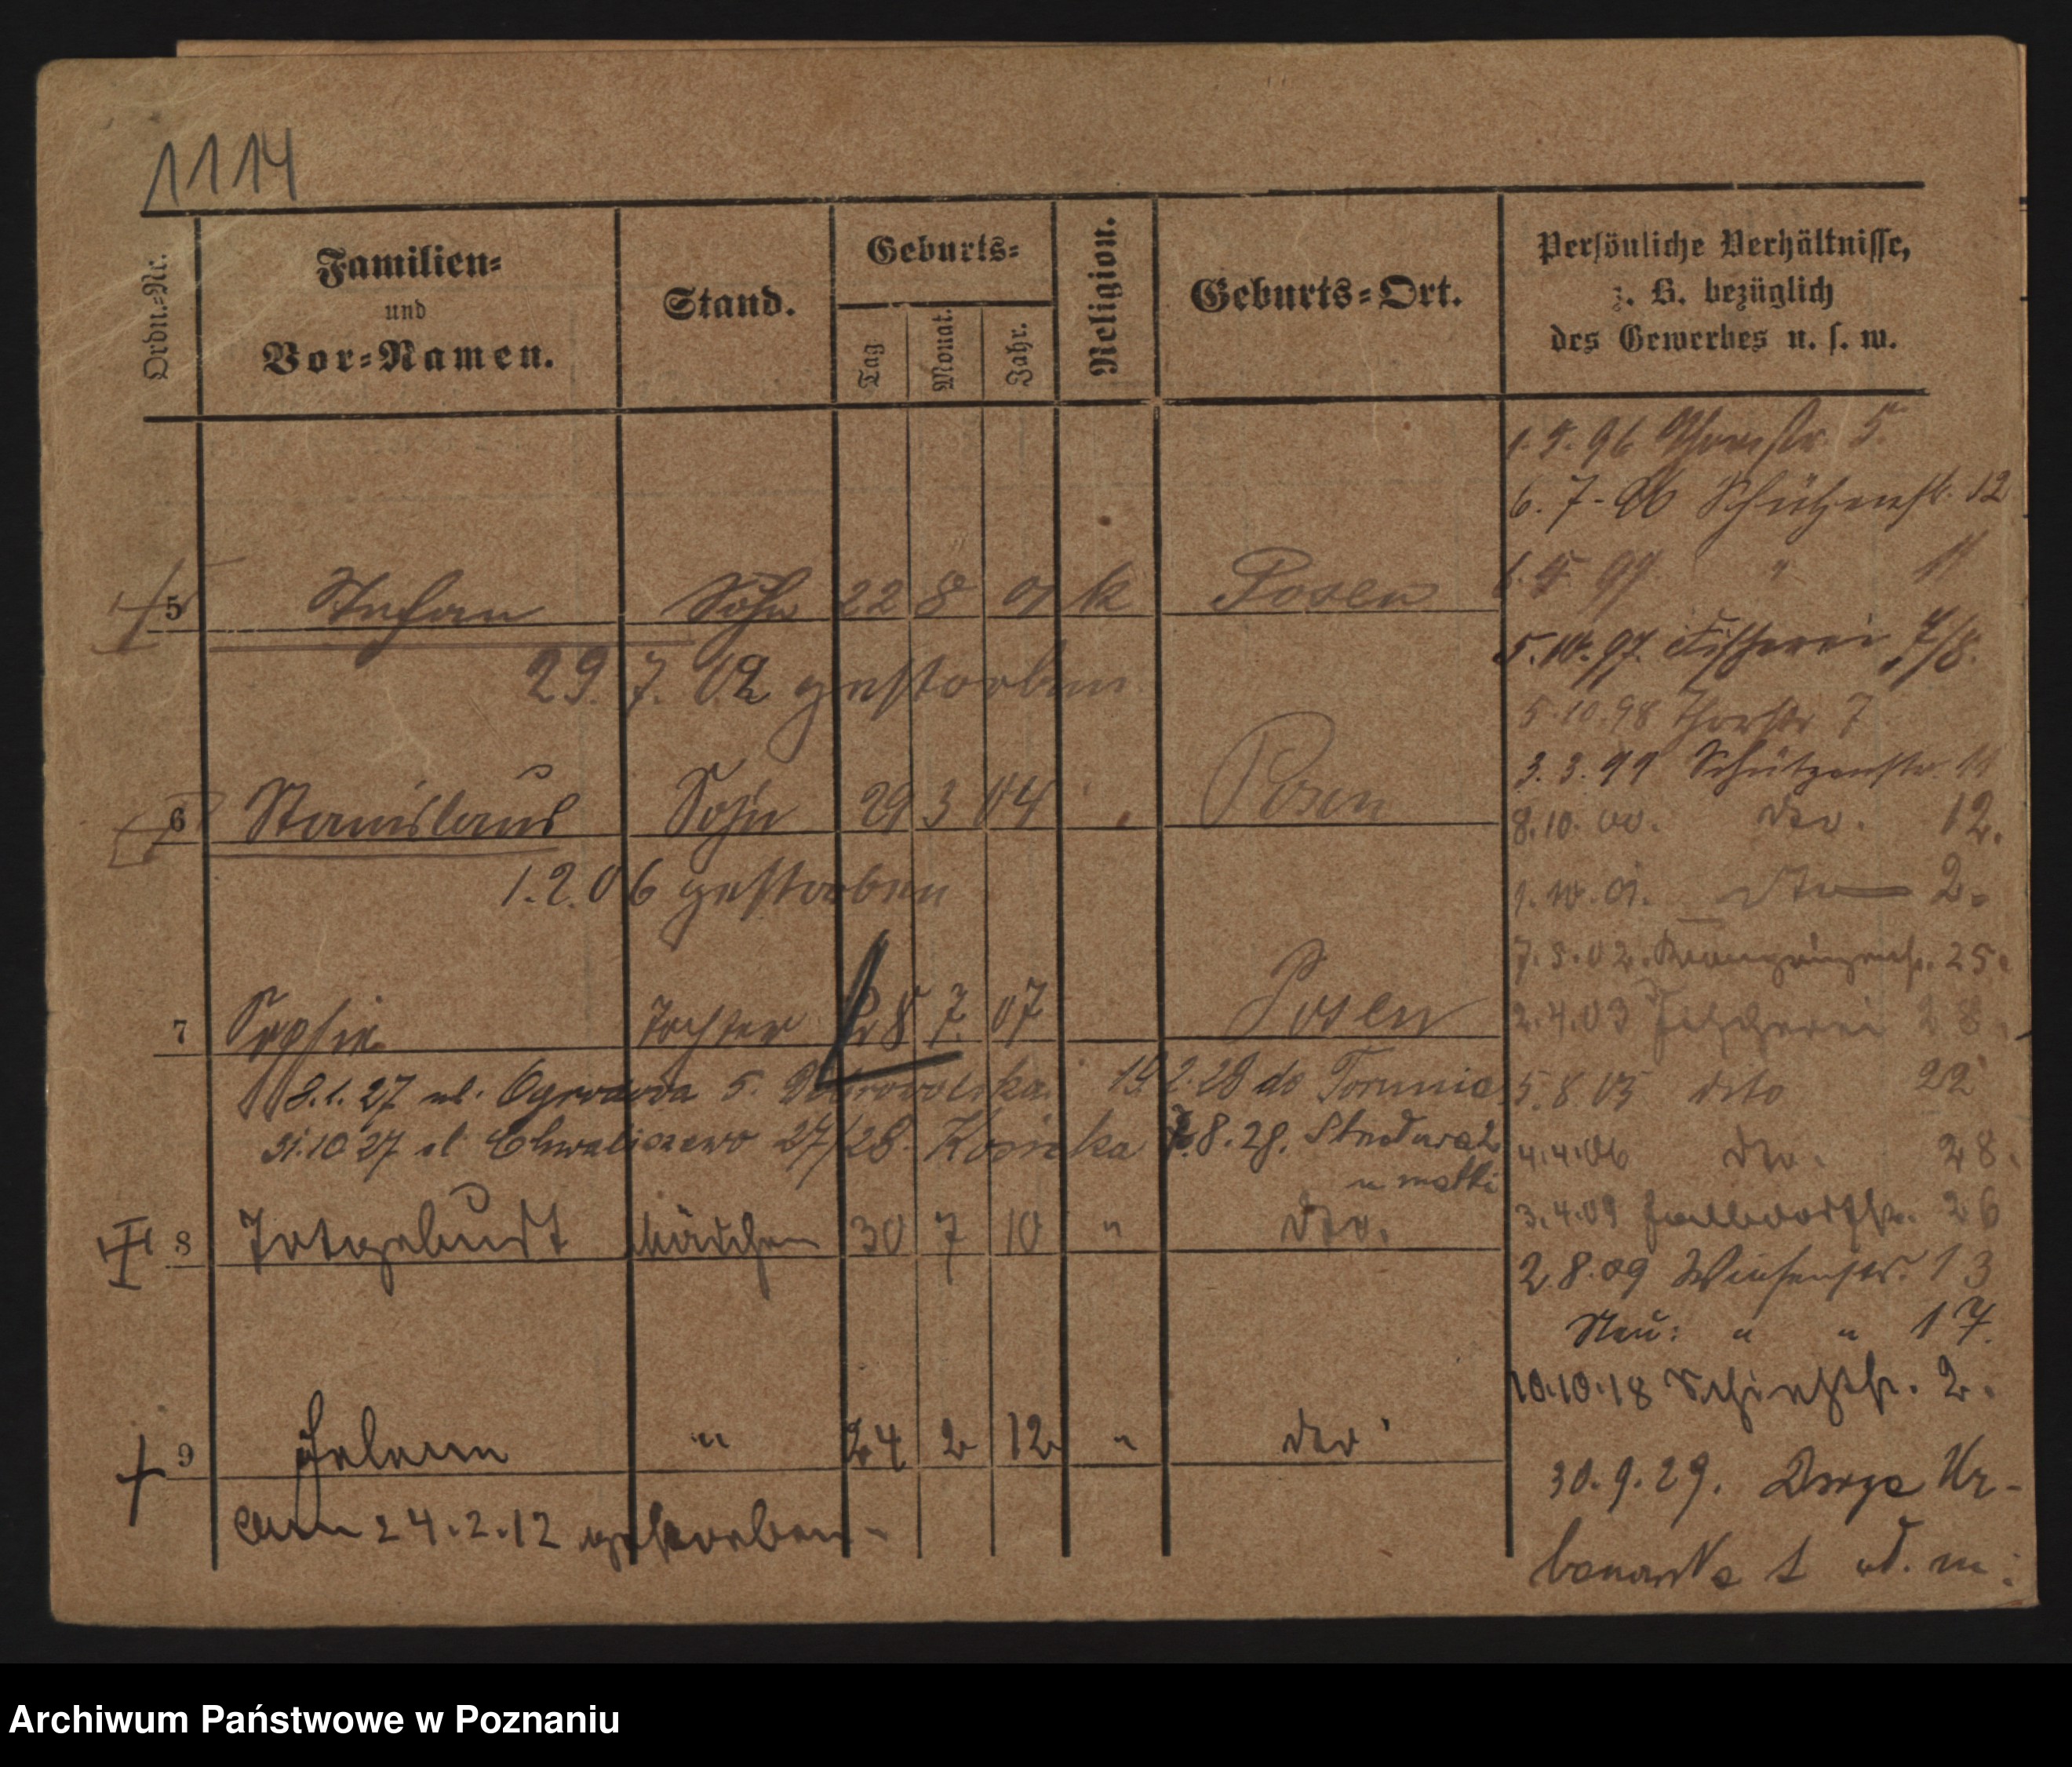 1114
Ordn.-Nr.
Familien-
und
Vor-Namen.
Stand.
Geburts-
Tag
Monat.
Jahr.
Religion.
Geburts-Ort.
Persönliche Verhältnisse,
z. B. bezüglich
des Gewerbes u. s. w.
5 Stefan Sohn 22 8 01 k Posen
29. 7. 02 gestorben
6 Stanislaus Sohn 29 3 04 Posen
1.2.06 gestorben
7 Sophie Tochter 8 7 07 Posen
8.1.27 ul. Ogrodowa 5. 19 2.28 do Torunia
31.10.27 ul Chwaliszewo 27/28. 8.28.
u matki
8 Totgeburt Mädchen 30 7 10 " dto.
9 Helene " 24 2 12 " dto
am 24.2.12 gestorben
96 Thorstr. 5.
6. 7. Schützenstr. 12
97 " 11
5.10.97. Fischerei 7/8.
5.10.98 Thorstr 7
3.3.99 Schützenstr. 11
8.10.00. dto. 12.
1.10.01. dto 2.
02. 25.
2.4.03 Fischerei 28.
5.8.05 dito 22
4.4.06 dto. 28.
3.4.09 26
2.8.09 Wiesenstr. 13
Neu: " " 17.
10.10.18 Schießstr. 2.
30.9.29. Droga Ur-
banowska 1 od. m.
Archiwum Państwowe w Poznaniu